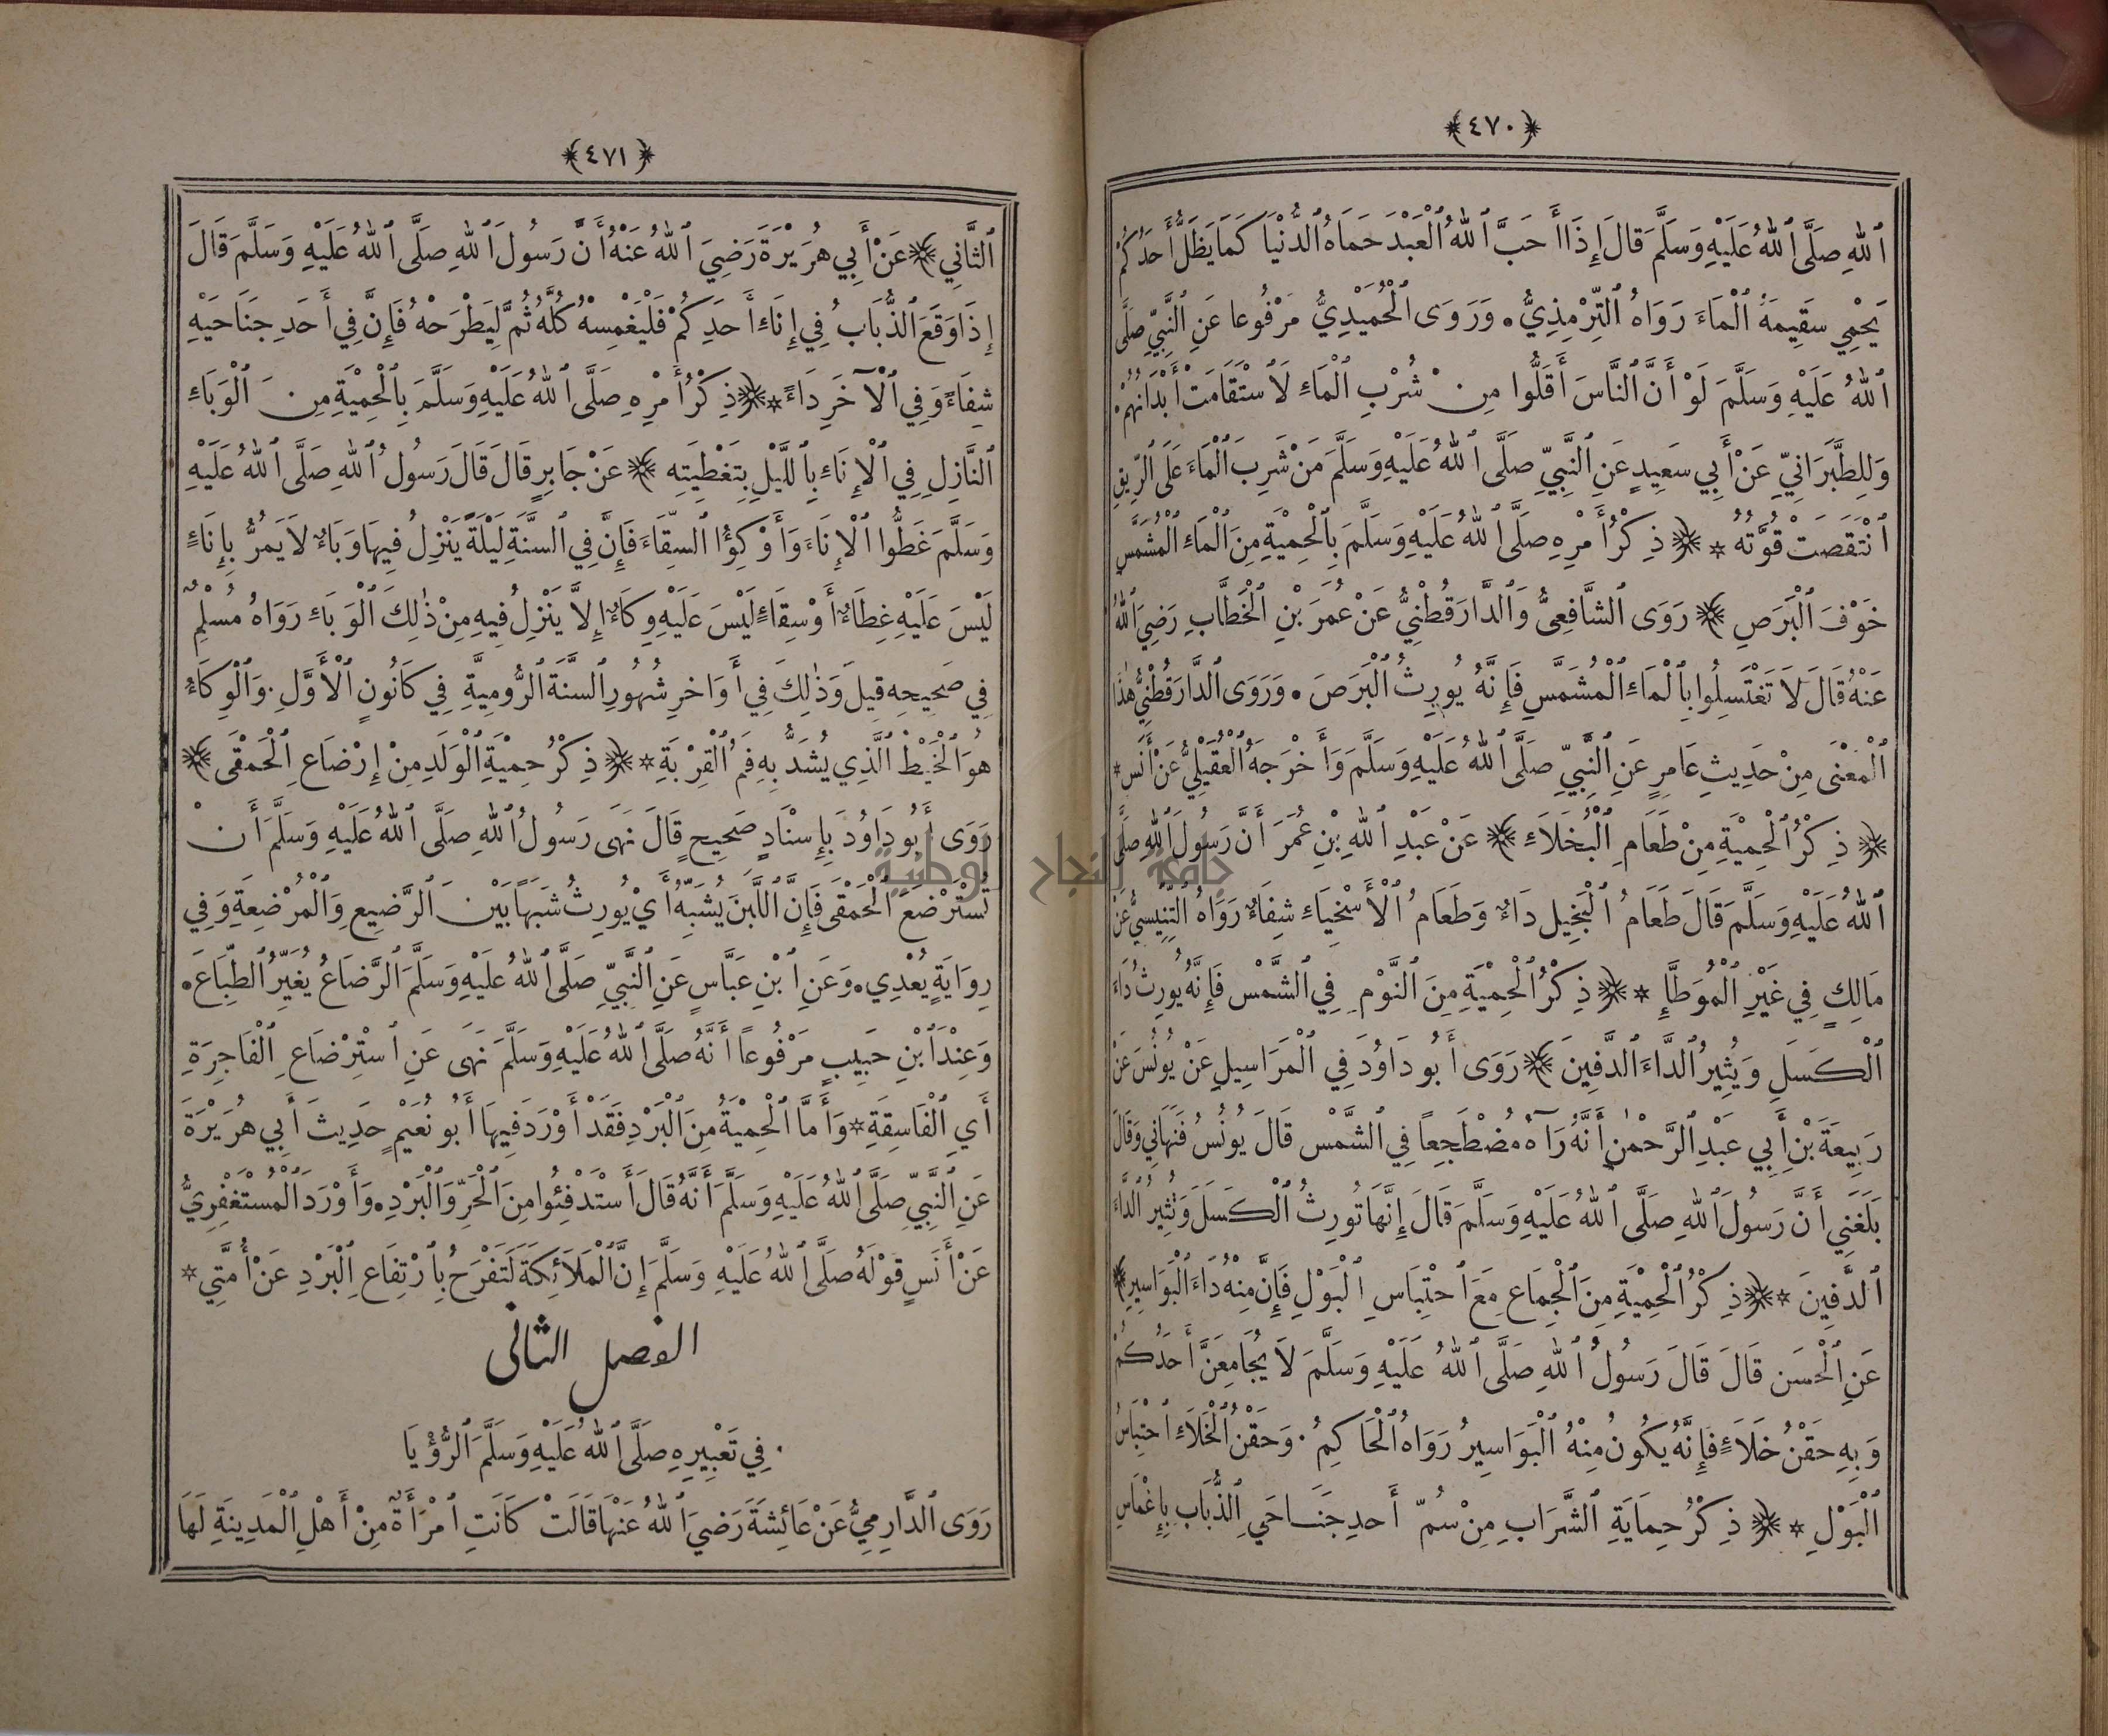 ﴿٤٧٠﴾
ٱللهِ صَلَّى ٱللهُ عَلَيْهِ وَسَلَّمَ قَالَ إِذَا أَحَبَّ ٱللهُ ٱلْعَبْدَ حَمَاهُ ٱلدُّنْيَا كَمَا يَظَلُّ أَحَدُكُمْ
يَحْمِي سَقِيمَهُ ٱلْمَاءَ رَوَاهُ ٱلتِّرْمِذِيُّ. وَرَوَى ٱلْحُمَيْدِيُّ مَرْفُوعًا عَنِ ٱلنَّبِيِّ صَلَّى
ٱللهُ عَلَيْهِ وَسَلَّمَ لَوْ أَنَّ ٱلنَّاسَ أَقَلُّوا مِنْ شُرْبِ ٱلْمَاءِ لَاسْتَقَامَتْ أَبْدَانُهُمْ.
وَلِلطَّبَرَانِيِّ عَنْ أَبِي سَعِيدٍ عَنِ ٱلنَّبِيِّ صَلَّى ٱللهُ عَلَيْهِ وَسَلَّمَ مَنْ شَرِبَ ٱلْمَاءَ عَلَى ٱلرِّيقِ
ٱنْتَقَصَتْ قُوَّتُهُ * ﴿ ذِكْرُ أَمْرِهِ صَلَّى ٱللهُ عَلَيْهِ وَسَلَّمَ بِٱلْحِمْيَةِ مِنَ ٱلْمَاءِ ٱلْمُشَمَّسِ
خَوْفَ ٱلْبَرَصِ ﴾ رَوَى ٱلشَّافِعِيُّ وَٱلدَّارَقُطْنِيُّ عَنْ عُمَرَ بْنِ ٱلْخَطَّابِ رَضِيَ ٱللهُ
عَنْهُ قَالَ لَا تَغْتَسِلُوا بِٱلْمَاءِ ٱلْمُشَمَّسِ فَإِنَّهُ يُورِثُ ٱلْبَرَصَ. وَرَوَى ٱلدَّارَقُطْنِيُّ هٰذَا
ٱلْمَعْنَى مِنْ حَدِيثِ عَامِرٍ عَنِ ٱلنَّبِيِّ صَلَّى ٱللهُ عَلَيْهِ وَسَلَّمَ وَأَخْرَجَهُ ٱلْعُقَيْلِيُّ عَنْ أَنَسٍ *
﴿ ذِكْرُ ٱلْحِمْيَةِ مِنْ طَعَامِ ٱلْبُخَلَاءِ ﴾ عَنْ عَبْدِ ٱللهِ بْنِ عُمَرَ أَنَّ رَسُولَ ٱللهِ صَلَّى
ٱللهُ عَلَيْهِ وَسَلَّمَ قَالَ طَعَامُ ٱلْبَخِيلِ دَاءٌ وَطَعَامُ ٱلْأَسْخِيَاءِ شِفَاءٌ رَوَاهُ ٱلتِّنِّيسِيُّ عَنْ
مَالِكٍ فِي غَيْرِ ٱلْمُوَطَّإِ * ﴿ ذِكْرُ ٱلْحِمْيَةِ مِنَ ٱلنَّوْمِ فِي ٱلشَّمْسِ فَإِنَّهُ يُورِثُ دَاءَ
ٱلْكَسَلِ وَيُثِيرُ ٱلدَّاءَ ٱلدَّفِينَ ﴾ رَوَى أَبُو دَاوُدَ فِي ٱلْمَرَاسِيلِ عَنْ يُونُسَ عَنْ
رَبِيعَةَ بْنِ أَبِي عَبْدِ ٱلرَّحْمٰنِ أَنَّهُ رَآهُ مُضْطَجِعًا فِي ٱلشَّمْسِ قَالَ يُونُسُ فَنَهَانِي وَقَالَ
بَلَغَنِي أَنَّ رَسُولَ ٱللهِ صَلَّى ٱللهُ عَلَيْهِ وَسَلَّمَ قَالَ إِنَّهَا تُورِثُ ٱلْكَسَلَ وَتُثِيرُ ٱلدَّاءَ
ٱلدَّفِينَ * ﴿ ذِكْرُ ٱلْحِمْيَةِ مِنَ ٱلْجِمَاعِ مَعَ ٱحْتِبَاسِ ٱلْبَوْلِ فَإِنَّ مِنْهُ دَاءَ ٱلْبَوَاسِيرِ ﴾
عَنِ ٱلْحَسَنِ قَالَ قَالَ رَسُولُ ٱللهِ صَلَّى ٱللهُ عَلَيْهِ وَسَلَّمَ لَا يُجَامِعَنَّ أَحَدُكُمْ
وَبِهِ حَقْنُ خَلَاءٍ فَإِنَّهُ يَكُونُ مِنْهُ ٱلْبَوَاسِيرُ رَوَاهُ ٱلْحَاكِمُ. وَحَقْنُ ٱلْخَلَاءِ ٱحْتِبَاسُ
ٱلْبَوْلِ * ﴿ ذِكْرُ حِمَايَةِ ٱلشَّرَابِ مِنْ سُمِّ أَحَدِ جَنَاحَيِ ٱلذُّبَابِ بِإِغْمَاسِ
﴿٤٧١﴾
ٱلثَّانِي ﴾ عَنْ أَبِي هُرَيْرَةَ رَضِيَ ٱللهُ عَنْهُ أَنَّ رَسُولَ ٱللهِ صَلَّى ٱللهُ عَلَيْهِ وَسَلَّمَ قَالَ
إِذَا وَقَعَ ٱلذُّبَابُ فِي إِنَاءِ أَحَدِكُمْ فَلْيَغْمِسْهُ كُلَّهُ ثُمَّ لِيَطْرَحْهُ فَإِنَّ فِي أَحَدِ جَنَاحَيْهِ
شِفَاءً وَفِي ٱلْآخَرِ دَاءً * ﴿ ذِكْرُ أَمْرِهِ صَلَّى ٱللهُ عَلَيْهِ وَسَلَّمَ بِٱلْحِمْيَةِ مِنَ ٱلْوَبَاءِ
ٱلنَّازِلِ فِي ٱلْإِنَاءِ بِٱللَّيْلِ بِتَغْطِيَتِهِ ﴾ عَنْ جَابِرٍ قَالَ قَالَ رَسُولُ ٱللهِ صَلَّى ٱللهُ عَلَيْهِ
وَسَلَّمَ غَطُّوا ٱلْإِنَاءَ وَأَوْكِؤُا ٱلسِّقَاءَ فَإِنَّ فِي ٱلسَّنَةِ لَيْلَةً يَنْزِلُ فِيهَا وَبَاءٌ لَا يَمُرُّ بِإِنَاءٍ
لَيْسَ عَلَيْهِ غِطَاءٌ أَوْ سِقَاءٍ لَيْسَ عَلَيْهِ وِكَاءٌ إِلَّا يَنْزِلُ فِيهِ مِنْ ذٰلِكَ ٱلْوَبَاءِ رَوَاهُ مُسْلِمٌ
فِي صَحِيحِهِ قِيلَ وَذٰلِكَ فِي أَوَاخِرِ شُهُورِ ٱلسَّنَةِ ٱلرُّومِيَّةِ فِي كَانُونِ ٱلْأَوَّلِ. وَٱلْوِكَاءُ
هُوَ ٱلْخَيْطُ ٱلَّذِي يُشَدُّ بِهِ فَمُ ٱلْقِرْبَةِ * ﴿ ذِكْرُ حِمْيَةِ ٱلْوَلَدِ مِنْ إِرْضَاعِ ٱلْحَمْقَى ﴾
رَوَى أَبُو دَاوُدَ بِإِسْنَادٍ صَحِيحٍ قَالَ نَهَى رَسُولُ ٱللهِ صَلَّى ٱللهُ عَلَيْهِ وَسَلَّمَ أَنْ
تُسْتَرْضَعَ ٱلْحَمْقَى فَإِنَّ ٱللَّبَنَ يُشَبِّهُ أَيْ يُورِثُ شَبَهًا بَيْنَ ٱلرَّضِيعِ وَٱلْمُرْضِعَةِ وَفِي
رِوَايَةٍ يُعْدِي. وَعَنِ ٱبْنِ عَبَّاسٍ عَنِ ٱلنَّبِيِّ صَلَّى ٱللهُ عَلَيْهِ وَسَلَّمَ ٱلرَّضَاعُ يُغَيِّرُ ٱلطِّبَاعَ.
وَعِنْدَ ٱبْنِ حَبِيبٍ مَرْفُوعًا أَنَّهُ صَلَّى ٱللهُ عَلَيْهِ وَسَلَّمَ نَهَى عَنِ ٱسْتِرْضَاعِ ٱلْفَاجِرَةِ
أَيِ ٱلْفَاسِقَةِ * وَأَمَّا ٱلْحِمْيَةُ مِنَ ٱلْبَرْدِ فَقَدْ أَوْرَدَ فِيهَا أَبُو نُعَيْمٍ حَدِيثَ أَبِي هُرَيْرَةَ
عَنِ ٱلنَّبِيِّ صَلَّى ٱللهُ عَلَيْهِ وَسَلَّمَ أَنَّهُ قَالَ ٱسْتَدْفِئُوا مِنَ ٱلْحَرِّ وَٱلْبَرْدِ. وَأَوْرَدَ ٱلْمُسْتَغْفِرِيُّ
عَنْ أَنَسٍ قَوْلَهُ صَلَّى ٱللهُ عَلَيْهِ وَسَلَّمَ إِنَّ ٱلْمَلَائِكَةَ لَتَفْرَحُ بِٱرْتِفَاعِ ٱلْبَرْدِ عَنْ أُمَّتِي *
الفصل الثانى
فِي تَعْبِيرِهِ صَلَّى ٱللهُ عَلَيْهِ وَسَلَّمَ ٱلرُّؤْيَا
رَوَى ٱلدَّارِمِيُّ عَنْ عَائِشَةَ رَضِيَ ٱللهُ عَنْهَا قَالَتْ كَانَتِ ٱمْرَأَةٌ مِنْ أَهْلِ ٱلْمَدِينَةِ لَهَا
جامعة النجاح الوطنية